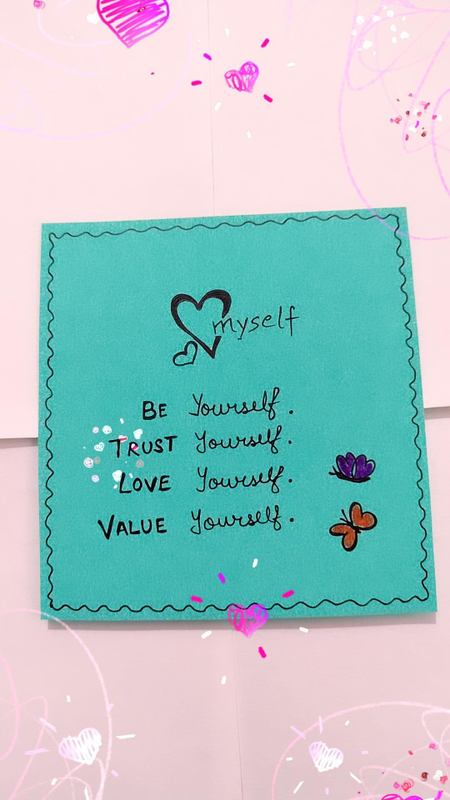 myself
BE Yourself.
TRUST Yourself.
LOVE Yourself.
VALUE Yourself.